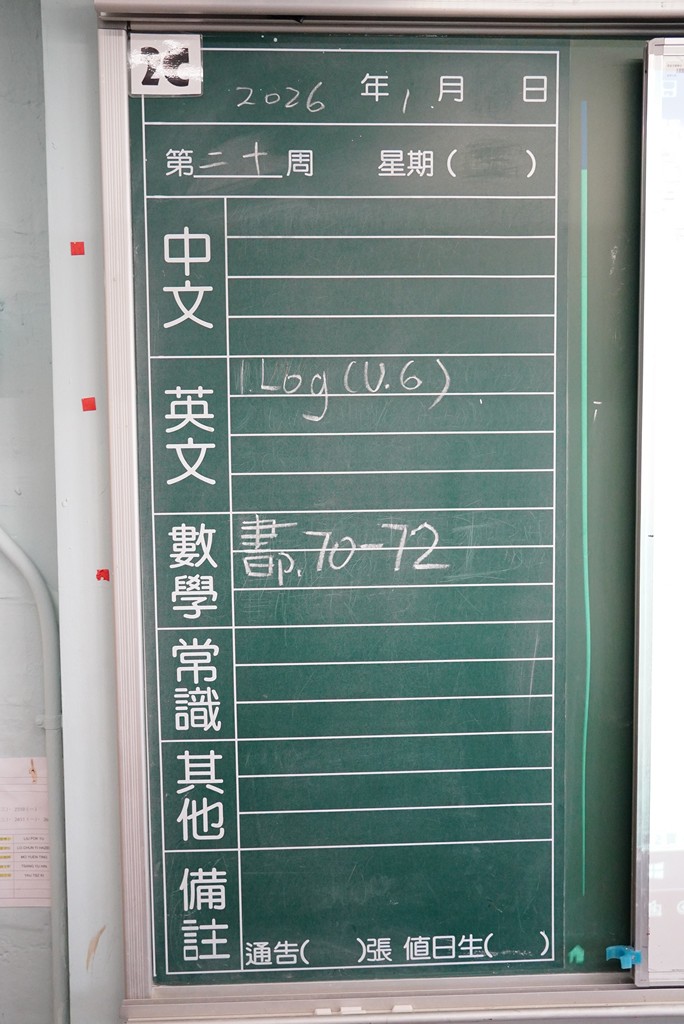 2C
2026 年 1 月 日
第二十周 星期( )
中文
英文
1. Log (U.6)
數學
書 p.70-72
常識
其他
備註
通告( )張 值日生( )